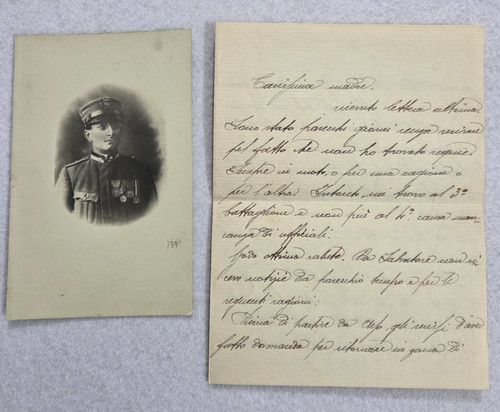 135
Carissima madre.
ricevuto lettera ultima.
Sono stato parecchi giorni senza scrivere
pel fatto che non ho trovato requie.
Sempre in moto, o per una ragione o
per l'altra. Intanto mi trovo al 3°
battaglione e non più al 4°. causa man-
canza di ufficiali.
Godo ottima salute. Da Salvatore non ri-
cevo notizie da parecchio tempo e per le
seguenti ragioni:
Prima di partire da gli scrissi d'aver
fatto domanda per ritornare in zona di